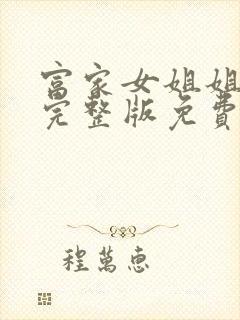 富家女姐姐
完整版免費
程萬惠